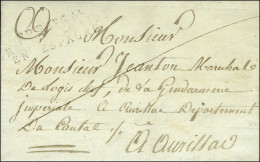 Monsieur
Monsieur Jeanton Marechal
De logis chef, de la Gendarmerie
imperiale a Aurillac Departement
Du Cantal
A Aurillac